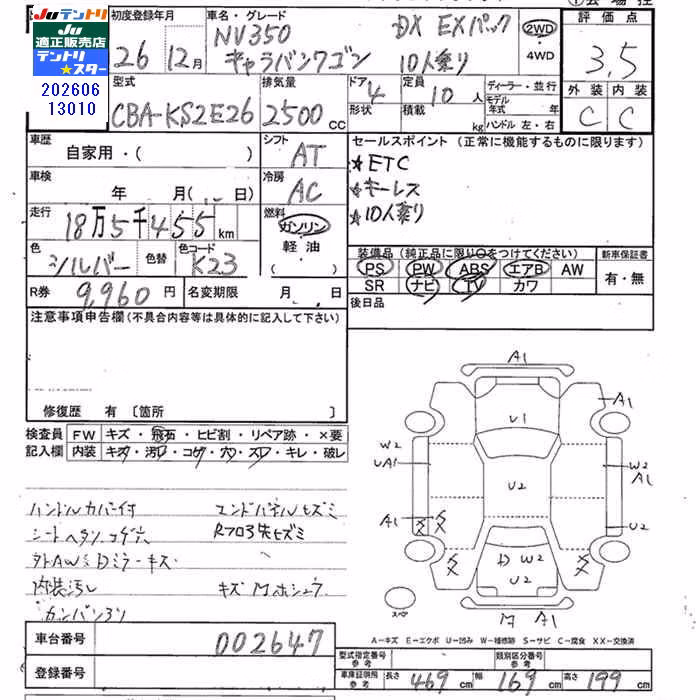 JUテントリ
JU
適正販売店
テントリ
★スター
202606
13010
初度登録年月
26年 12月
車名・グレード
NV350 DX EXパック
キャラバンワゴン 10人乗り
2WD
・
4WD
評価点
3.5
外装 内装
C C
型式
CBA-KS2E26
排気量
2500 cc
ドア 4
形状
定員 10 人
積載 kg
ディーラー・並行
モデル年式 年
ハンドル 左・右
車歴
自家用・( )
シフト
AT
車検
年 月( 日)
冷房
AC
走行
18万5千455 km
燃料
ガソリン
・
軽油
・( )
色
シルバー
色替
色コード
K23
R券 9,960 円
名変期限 月 日
セールスポイント (正常に機能するものに限ります)
★ETC
★キーレス
★10人乗り
装備品(純正品に限り○をつけてください)
PS PW ABS エアB AW
SR ナビ TV カワ
新車保証書
有・無
後日品
注意事項申告欄(不具合内容等は具体的に記入して下さい)
修復歴 有 〔箇所 〕
検査員
記入欄
FW キズ・飛石・ヒビ割・リペア跡・×要
内装 キズ・汚レ・コゲ・穴・スレ・キレ・破レ
ハンドルカバー付 エンドパネルヒズミ
シートヘタリ コゲ穴 Rフロア先ヒズミ
外AWミDミラーキズ
内装汚レ
カンバン3ツ
A1
A1
U1
W2
UA1
W2
A1
U2
A1
XX
XX
U2
XX
D W2
U2
A1
スペア
A−キズ E−エクボ U−凹み W−補修跡 S−サビ C−腐食 XX−交換済
車台番号 002647
登録番号
型式指定番号
参考
類別区分番号
参考
車庫証明所
参考
長さ 469 cm 幅 169 cm 高さ 199 cm